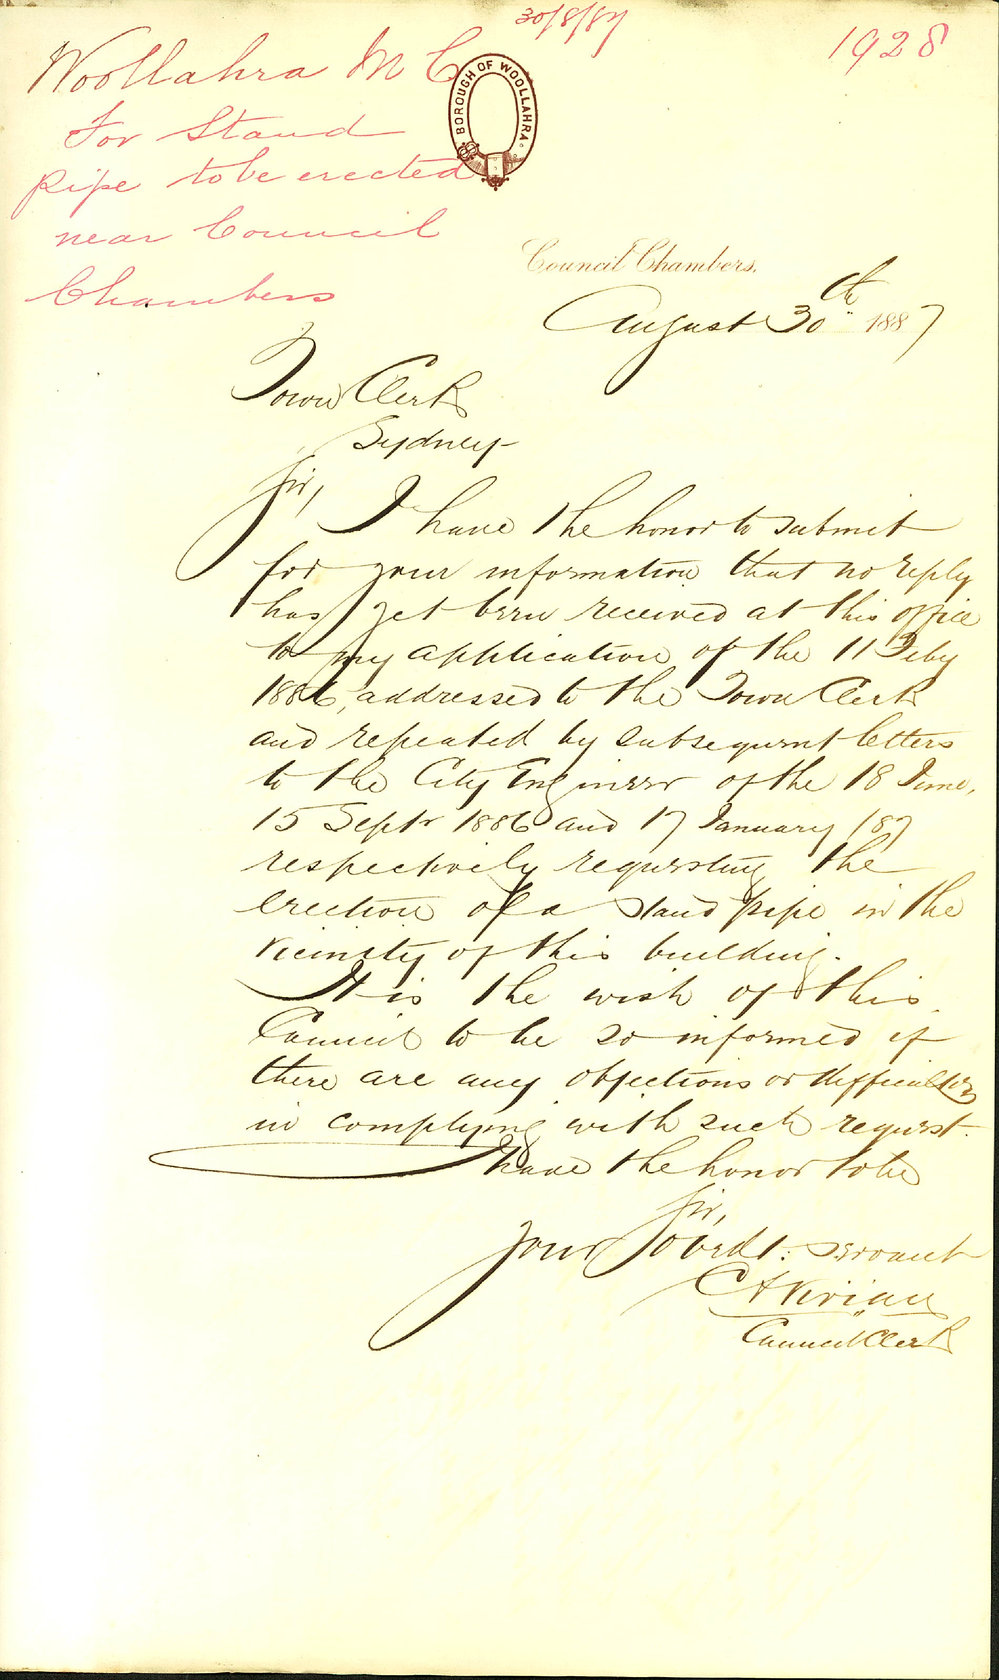 30/8/87
1928
Woollahra M C
For Stand
pipe to be erected
near Council
Chambers
BOROUGH OF WOOLLAHRA.
Council Chambers,
August 30th 1887
Town Clerk
Sydney
Sir,
I have the honor to submit
for your information that no reply
has yet been received at this office
to my application of the 11 Feby
1886, addressed to the Town Clerk
and repeated by subsequent letters
to the City Engineer of the 18 June,
15 Septr 1886 and 17 January 187
respectively requesting the
erection of a stand pipe in the
vicinity of this building.
It is the wish of this
Council to be so informed if
there are any objections or difficulties
in complying with such request.
have the honor to be
Sir,
Your obedt: servant
C A Vivian
Council Clerk